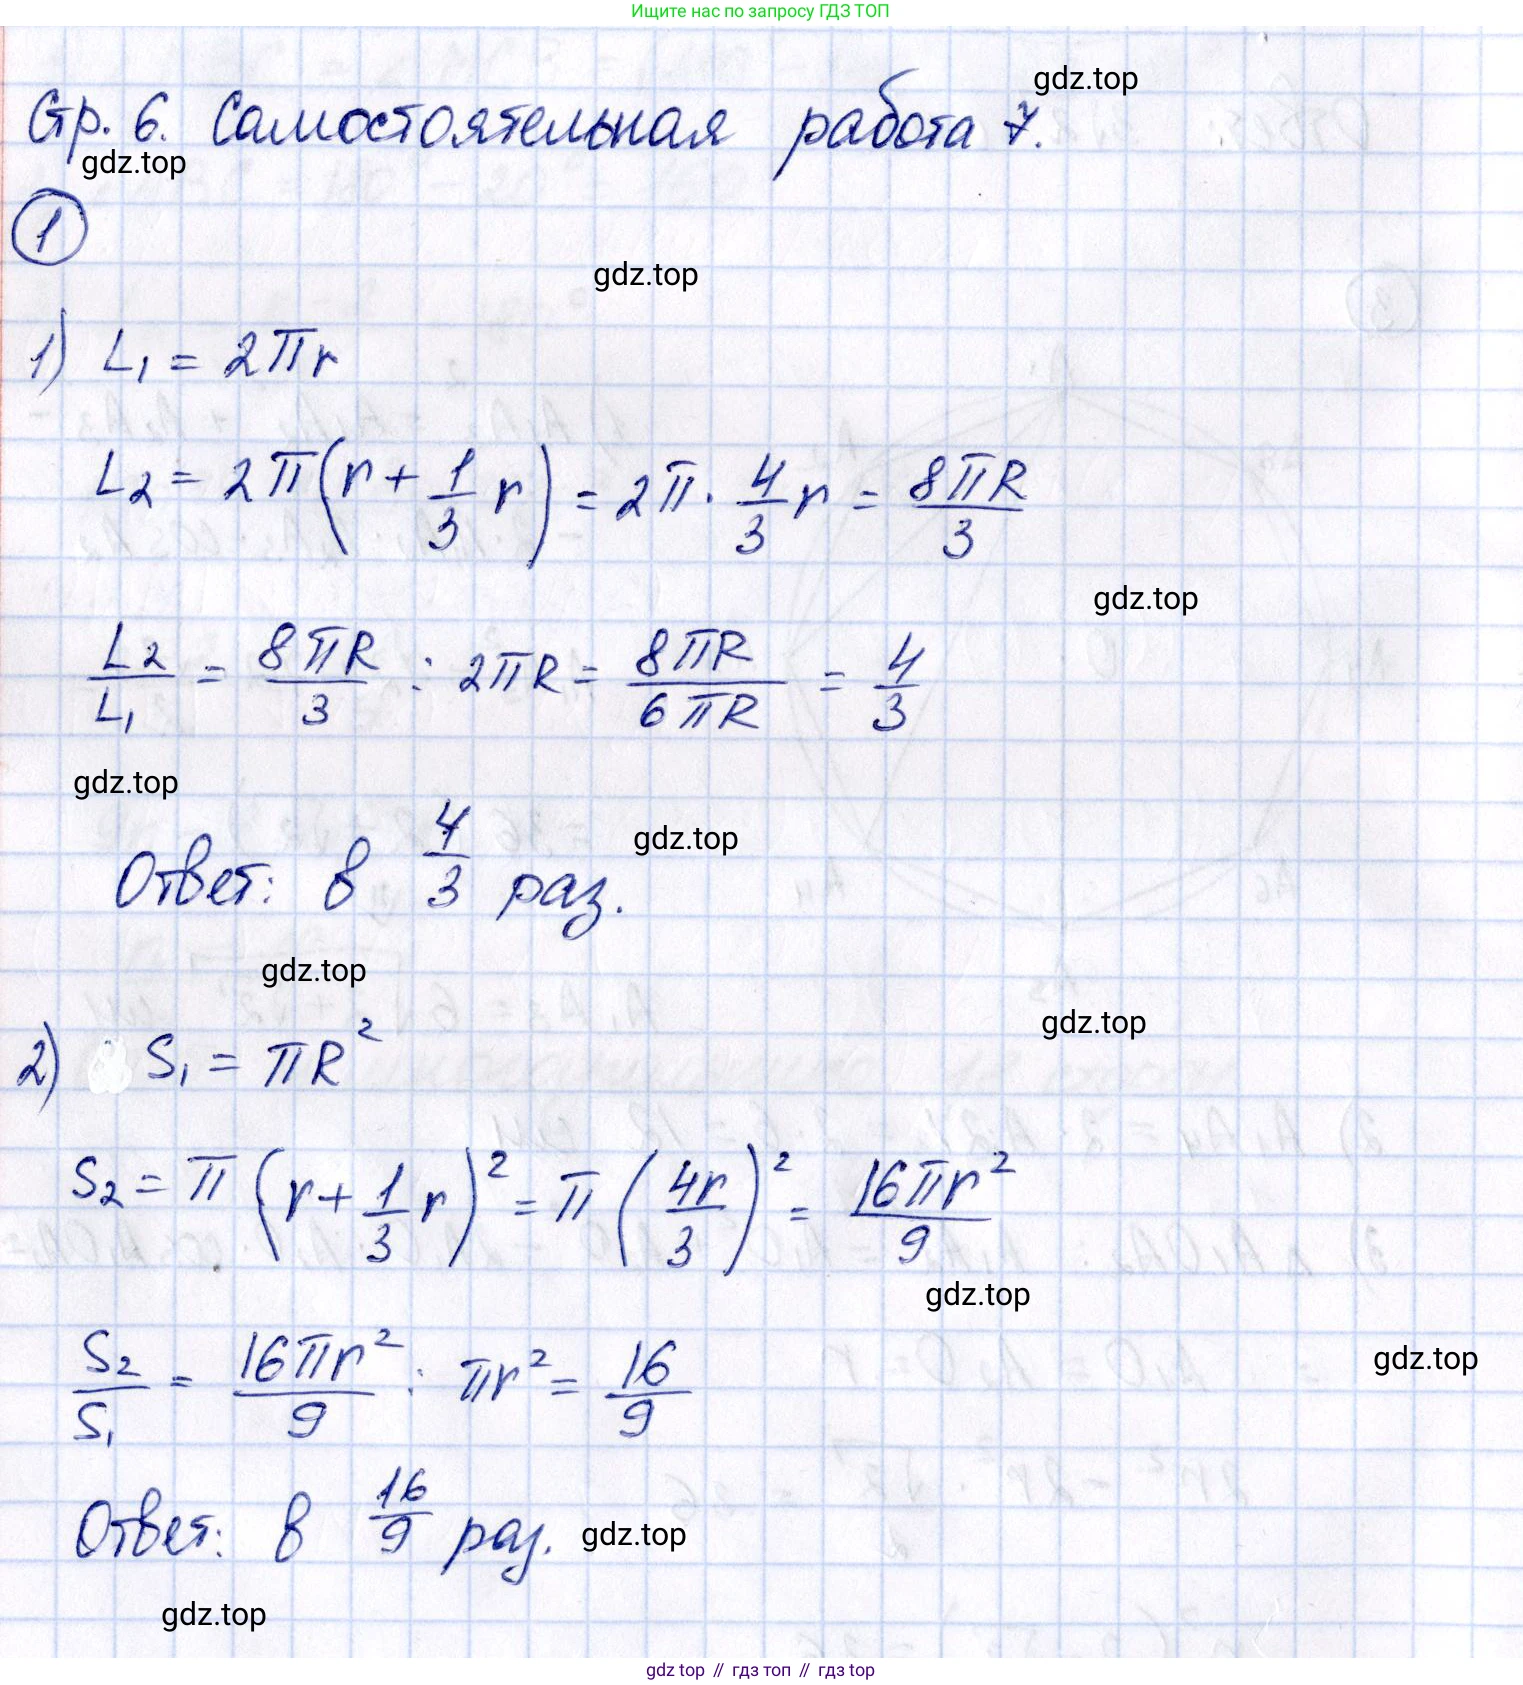 Ищите нас по запросу ГДЗ ТОП
gdz.top
Стр. 6. Самостоятельная работа 7.
gdz.top
1
gdz.top
1) L₁ = 2πr
L₂ = 2π(r + 1/3 r) = 2π · 4/3 r = 8πR/3
gdz.top
L₂/L₁ = 8πR/3 : 2πR = 8πR/6πR = 4/3
gdz.top
gdz.top
Ответ: в 4/3 раз.
gdz.top
gdz.top
2) S₁ = πR²
S₂ = π(r + 1/3 r)² = π(4r/3)² = 16πr²/9
gdz.top
gdz.top
S₂/S₁ = 16πr²/9 : πr² = 16/9
Ответ: в 16/9 раз.
gdz.top
gdz.top
gdz top // гдз топ // гдз top